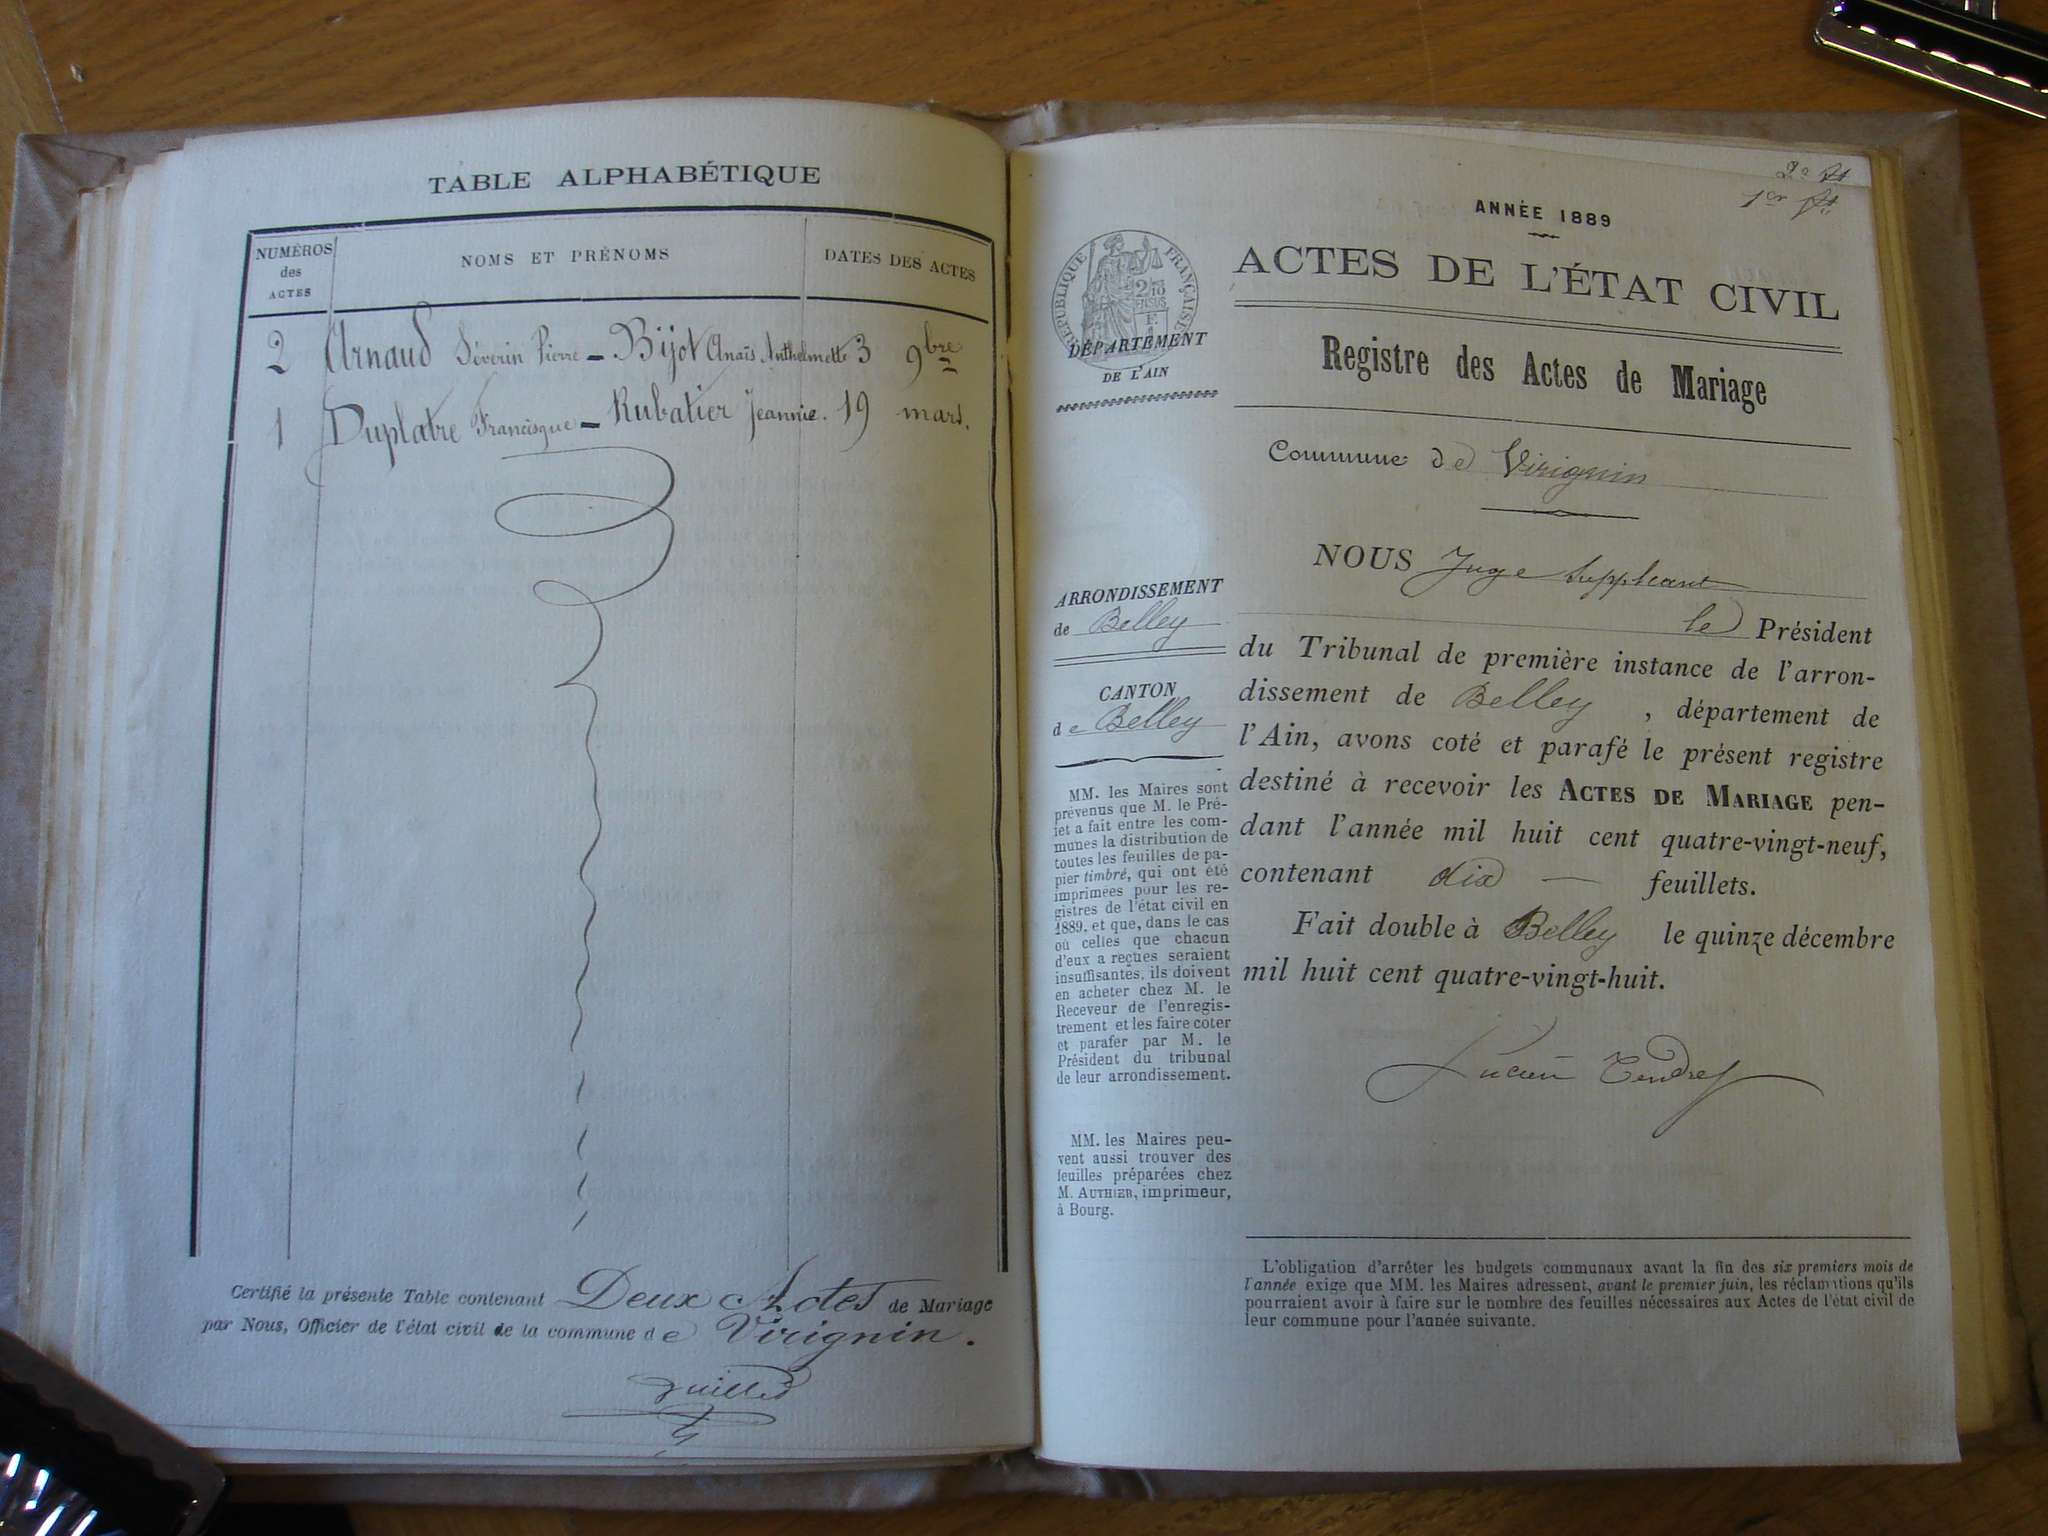 TABLE ALPHABÉTIQUE
NUMÉROS des ACTES
NOMS ET PRÉNOMS
DATES DES ACTES
2 Arnaud Séverin Pierre — Bijot Anaïs Anthelmette 3 9bre
1 Duplatre Francisque — Rubatier Jeannie. 19 mars.
Certifié la présente Table contenant Deux Actes de Mariage
par Nous, Officier de l'état civil de la commune de Virignin.
1er
ANNÉE 1889
ACTES DE L'ÉTAT CIVIL
RÉPUBLIQUE FRANÇAISE
DÉPARTEMENT
DE L'AIN
Registre des Actes de Mariage
Commune de Virignin
NOUS Juge Suppléant
le Président
du Tribunal de première instance de l'arron-
dissement de Belley, département de
l'Ain, avons coté et parafé le présent registre
destiné à recevoir les ACTES DE MARIAGE pen-
dant l'année mil huit cent quatre-vingt-neuf,
contenant dix — feuillets.
Fait double à Belley le quinze décembre
mil huit cent quatre-vingt-huit.
Lucien Tendret
ARRONDISSEMENT
de Belley
CANTON
de Belley
MM. les Maires sont
prévenus que M. le Pré-
fet a fait entre les com-
munes la distribution de
toutes les feuilles de pa-
pier timbré, qui ont été
imprimées pour les re-
gistres de l'état civil en
1889, et que, dans le cas
où celles que chacun
d'eux a reçues seraient
insuffisantes, ils doivent
en acheter chez M. le
Receveur de l'enregis-
trement et les faire coter
et parafer par M. le
Président du tribunal
de leur arrondissement.
MM. les Maires peu-
vent aussi trouver des
feuilles préparées chez
M. AUTHIER, imprimeur,
à Bourg.
L'obligation d'arrêter les budgets communaux avant la fin des six premiers mois de
l'année exige que MM. les Maires adressent, avant le premier juin, les réclamations qu'ils
pourraient avoir à faire sur le nombre des feuilles nécessaires aux Actes de l'état civil de
leur commune pour l'année suivante.